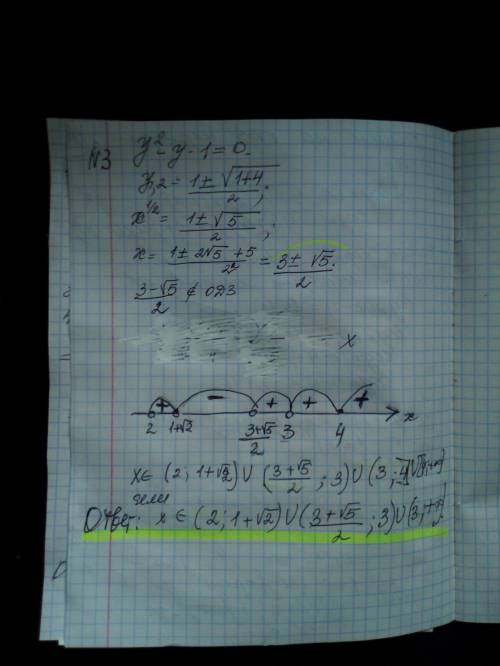 N3 y² - y - 1 = 0.
y1,2 = 1 ± √(1+4) / 2 ;
x^1/2 = 1 ± √5 / 2 ;
x = 1 ± 2√5 + 5 / 2² = 3 ± √5 / 2 .
3-√5 / 2 ∉ ОДЗ
x
+ - + + +
2 1+√2 3+√5 / 2 3 4 x
x ∈ (2; 1+√2) ∪ (3+√5 / 2 ; 3) ∪ (3;
Ответ: x ∈ (2; 1+√2) ∪ (3+√5 / 2 ; 3) ∪ (3; +∞)